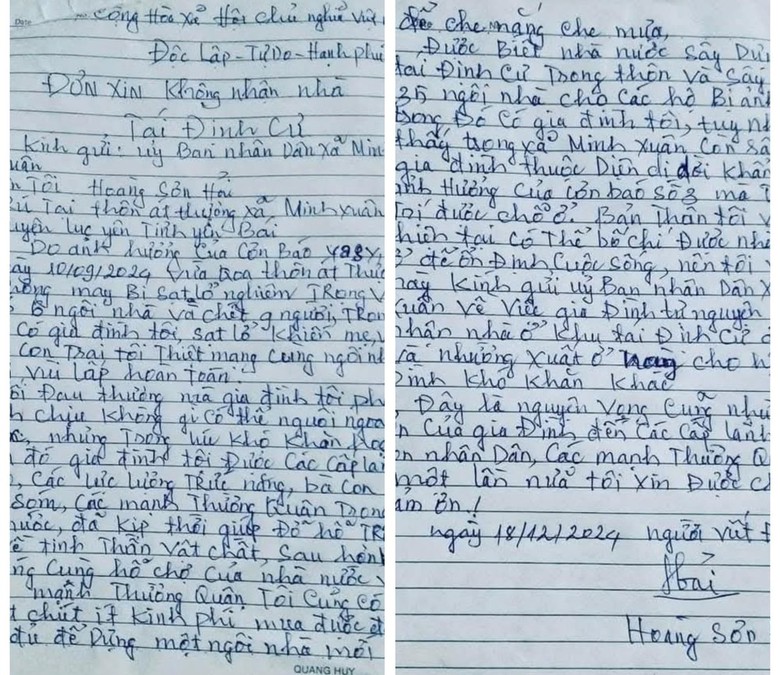 Cộng Hòa Xã Hội Chủ nghĩa Việt
Độc Lập-Tự Do-Hạnh phú
ĐƠN XIN Không nhận nhà
Tái Định Cư
Kính gửi: uỷ Ban nhân Dân xã Min
uân
n Tôi Hoàng Sơn Hải
Tại thôn át thượng xã Minh xuân
uyện lục yên Tỉnh yên Bái
Do ảnh hưởng Của Cơn Bão yagy,
ày 10/09/2024 vừa qua thôn át Thư
ông may Bị Sạt lở nghiêm TRọng v
6 ngôi nhà và chết 9 người, TRon
Có gia đình tôi, sạt lở khiến mẹ, v
Con Trai tôi Thiệt mạng Cùng ngôi n
vùi lấp hoàn toàn.
ỗi Đau thương mà gia đình tôi ph
h chịu không gì có thể nguôi ngoa
, nhưng Trong lúc khó khăn
đó gia đình tôi Được Các Cấp lã
, Các lực lượng Chức năng, bà Con
xóm, Các mạnh Thường Quân Trong
nước, đã kịp thời giúp Đỡ hỗ TR
ề tinh Thần vật chất, sau hơn
ng Cùng hỗ chợ Của nhà nước v
mạnh Thường Quân Tôi Cũng Có
t chút ít kinh phí mua được đ
đủ để Dựng một ngôi nhà mới
QUANG HUY
để che nắng che mưa,
Được Biết nhà nước Sây Dựn
tái Định Cư Trong thôn và Sây
35 ngôi nhà cho Các hộ Bị ản
trong Đó Có gia đình tôi, tuy n
thấy trong xã Minh Xuân Còn
gia đình thuộc Diện di dời khẩn
nh Hưởng Của Cơn bão số 3 mà
có được chỗ ở. Bản Thân tôi v
hiện tại có Thể bố chí Được nh
để ổn Định Cuộc sống, nên tôi
này kính gửi uỷ Ban nhân Dân X
xuân về việc gia Đình tự nguyện
nhận nhà ở khu tái Định Cư
và nhường xuất ở cho h
ình khó khăn khác
Đây là nguyện vọng Cũng như
n Của gia Đình đến Các Cấp lãn
n nhân Dân, Các mạnh Thường Q
một lần nữa tôi xin Được c
ảm ơn!
ngày 18/12/2024 người viết
Hải
Hoàng Sơn